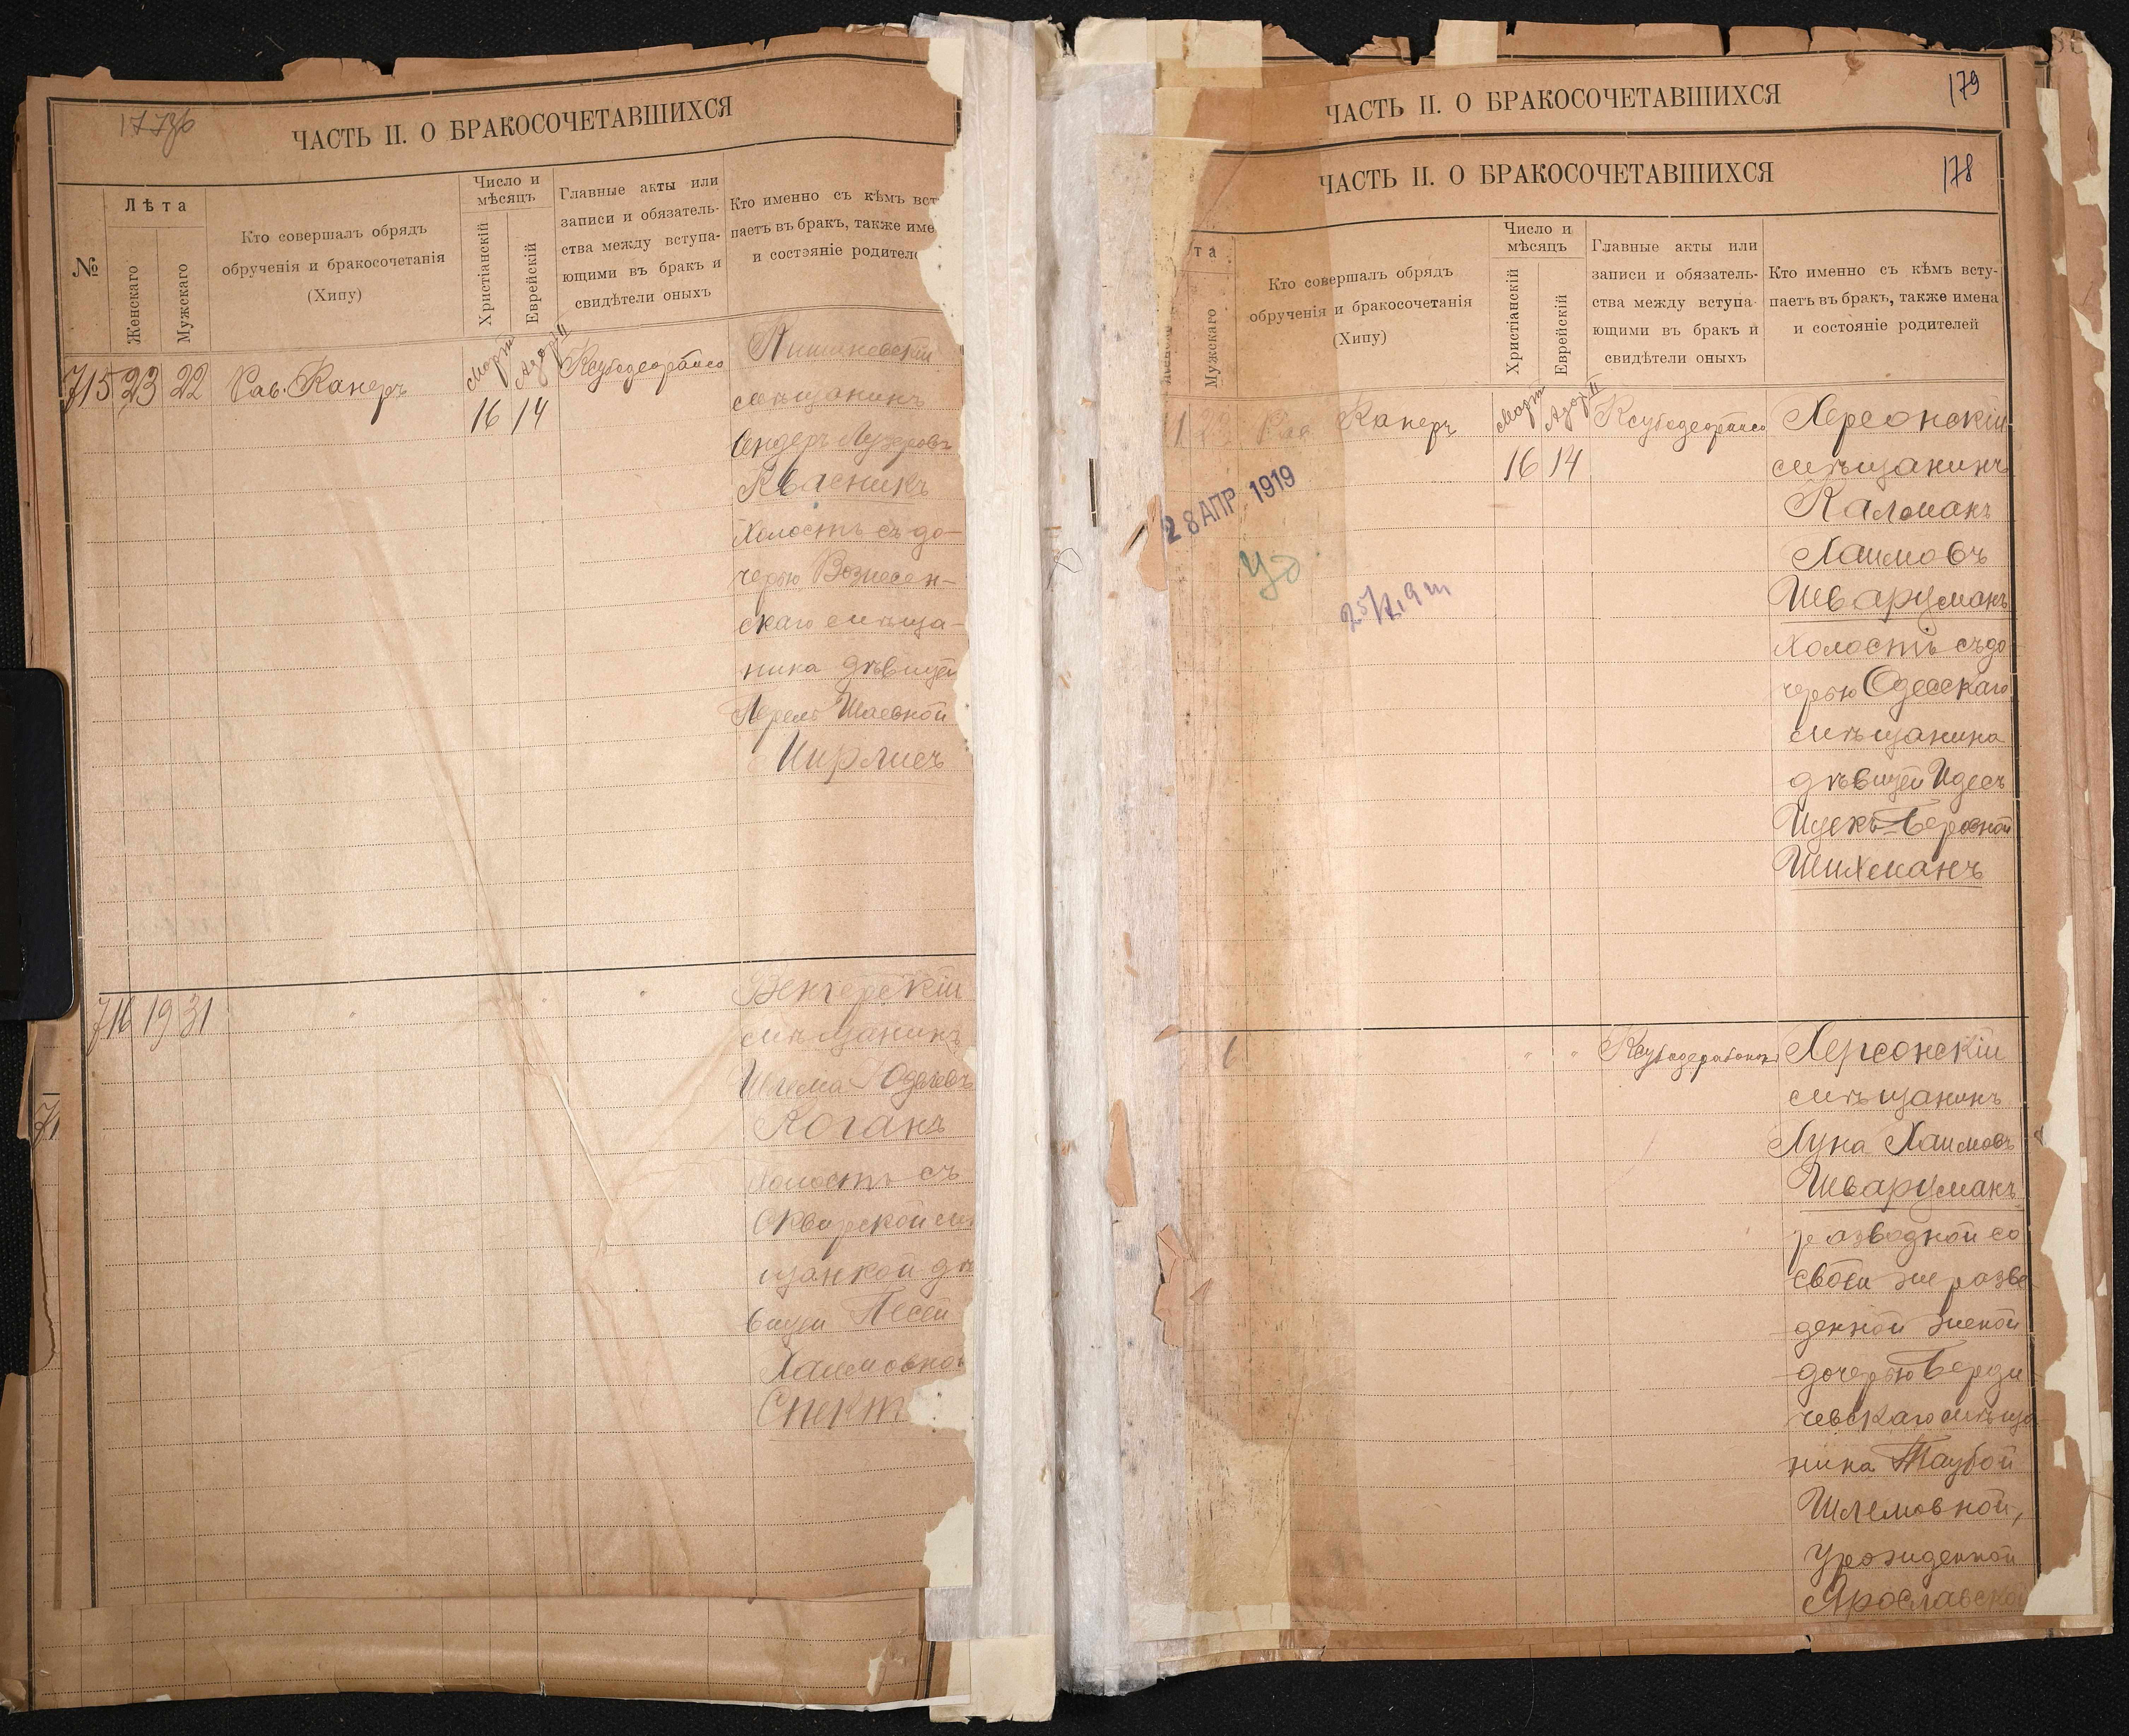 177об
ЧАСТЬ II. О БРАКОСОЧЕТАВШИХСЯ
№
Лѣта
Женскаго
Мужскаго
Кто совершалъ обрядъ
обрученія и бракосочетанія
(Хипу)
Число и
мѣсяцъ
Христіанскій
Еврейскій
Главные акты или
записи и обязатель-
ства между вступа-
ющими въ бракъ и
свидѣтели оныхъ
Кто именно съ кѣмъ вст
паетъ въ бракъ, также име
и состояніе родител
715 23 22 Рав. Канеръ
Мартъ
16 14
мѣщанинъ
Сендеръ Лузеровъ
Квасникъ
холостъ съ до-
черью Вознесен-
скаго мѣща-
нина дѣвицей
Перель Шаевной
Цирлисъ
716 19 31
Венгерскій
мѣщанинъ
Шлема
Коганъ
холостъ съ
Сквирской мѣ
щанкой дѣ
вицей Песей
Хаимовной
Спект
71
179
ЧАСТЬ II. О БРАКОСОЧЕТАВШИХСЯ
178
ЧАСТЬ II. О БРАКОСОЧЕТАВШИХСЯ
та
Мужскаго
Кто совершалъ обрядъ
обрученія и бракосочетанія
(Хипу)
Число и
мѣсяцъ
Христіанскій
Еврейскій
Главные акты или
записи и обязатель-
ства между вступа-
ющими въ бракъ и
свидѣтели оныхъ
Кто именно съ кѣмъ всту-
паетъ въ бракъ, также имена
и состояніе родителей
Рав Канеръ
Мартъ Адаръ II
16 14
28 АПР. 1919
Херсонскій
мѣщанинъ
Калманъ
Хаимовъ
Шварцманъ
холостъ съ до
черью Одесскаго
мѣщанина
дѣвицей Идесъ
Ицекъ-Беровной
Шихманъ
Херсонскій
мѣщанинъ
Луна Хаимовъ
Шварцманъ
разводной со
своей же разве
денной женой
дочерью Берди
чевскаго мѣща-
нина Таубой
Шлемовной,
урожденной
Ярославской